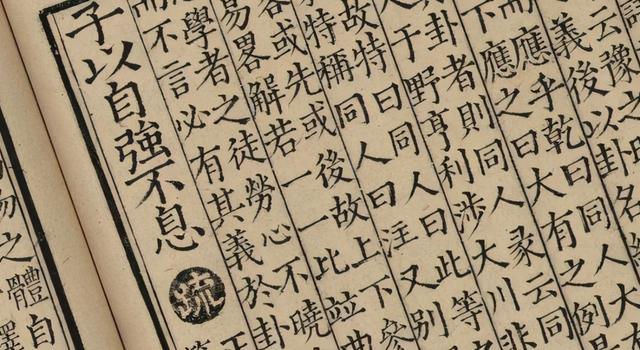 云豫
義後以卦名
而應乎乾曰同人大
下應之曰大有之例
卦者則同人彖云同
于野亨利涉大川
故特曰同人曰此等
特稱同人曰注又別
或先或後故上下參
易畧解若一一比竝
學者之徒勞心不曉
而不言必有其義於卦
子以自強不息疏
體自
之